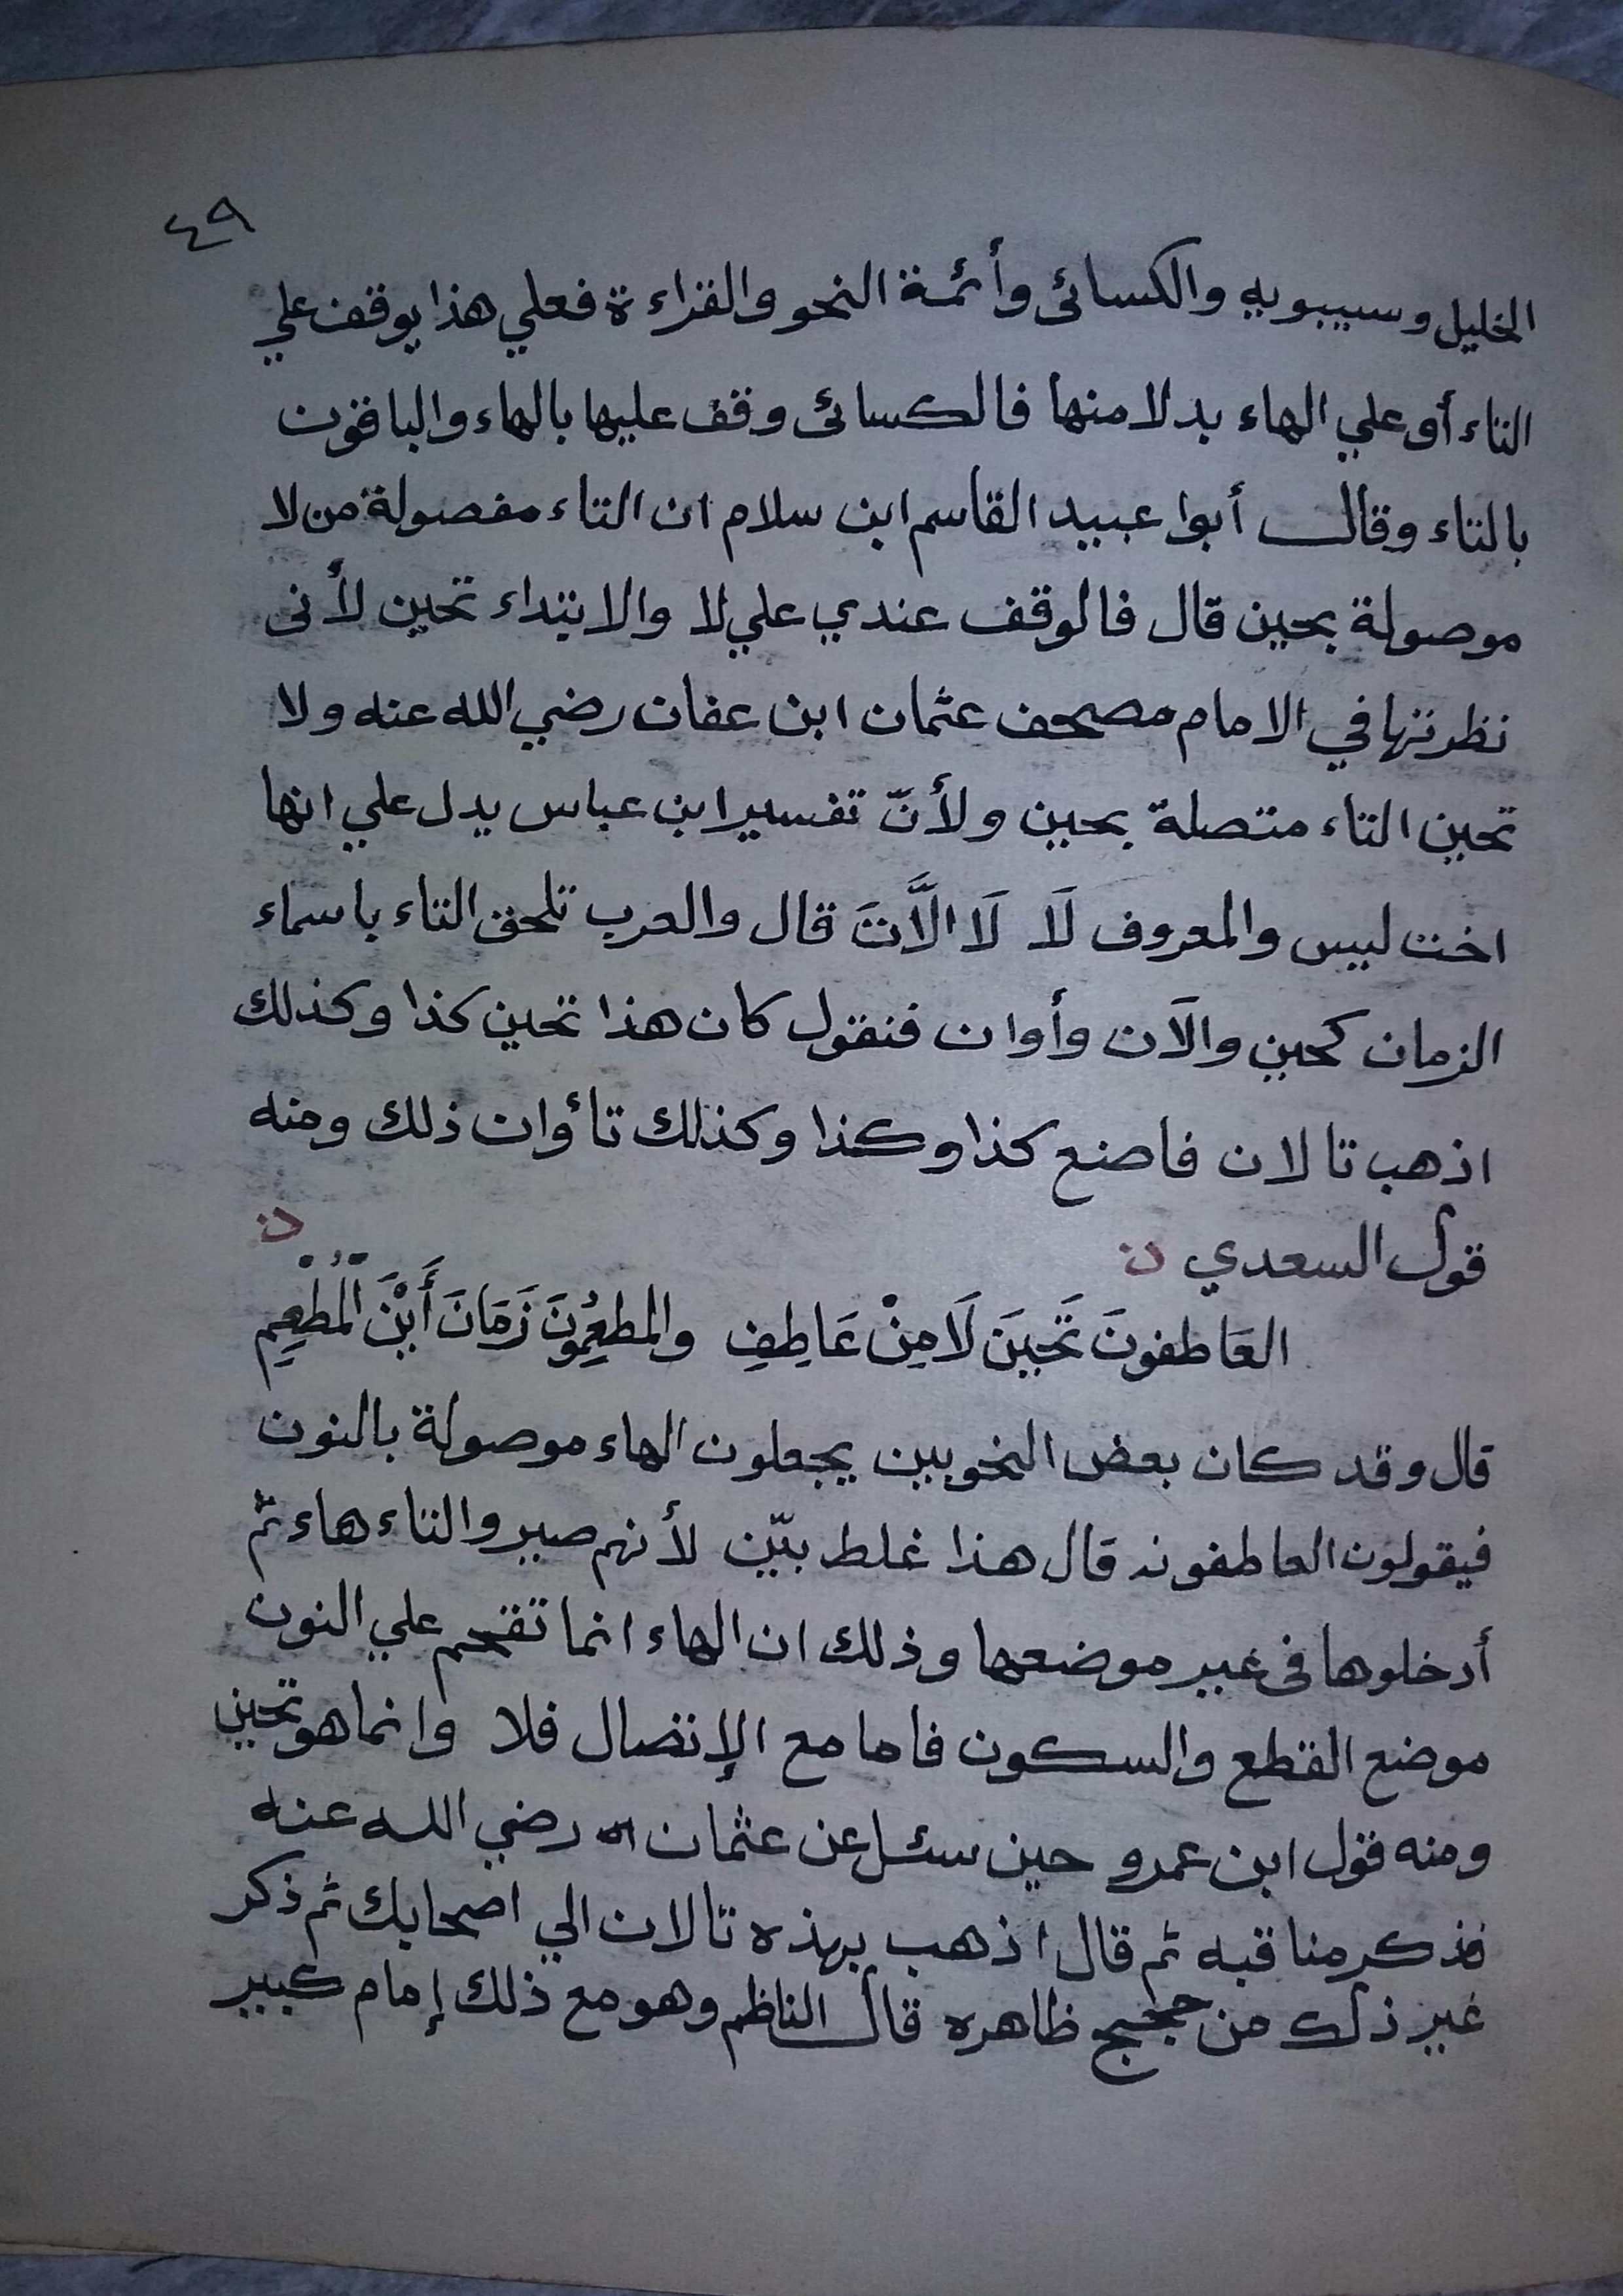 ٤٩
الخليل وسيبويه والكسائى وأئمة النحو والقراءة فعلي هذا يوقف علي
التاء أو علي الهاء بدلا منها فالكسائى وقف عليها بالهاء والباقون
بالتاء وقال أبوا عبيد القاسم ابن سلام ان التاء مفصولة من لا
موصولة بحين قال فالوقف عندي علي لا والابتداء تحين لأنى
نظرتها في الامام مصحف عثمان ابن عفان رضي الله عنه ولا
تحين التاء متصلة بحين ولأنّ تفسير ابن عباس يدل علي انها
اخت ليس والمعروف لَا لَا الَّاتَ قال والعرب تلحق التاء باسماء
الزمان كحين والآن وأوان فنقول كان هذا تحين كذا وكذلك
اذهب تالان فاصنع كذا وكذا وكذلك تأوان ذلك ومنه
قول السعدي ن ن
العَاطفونَ تَحِينَ لَامِنْ عَاطِفِ والمطعِمُونَ زَمَانَ أَيْنَ الْمُطْعِمِ
قال وقد كان بعض النحويين يجعلون الهاء موصولة بالنون
فيقولون العاطفونه قال هذا غلط بيّن لأنهم صيروالتاء هاء ثم
أدخلوها فى غير موضعها وذلك ان الهاء انما تقحم علي النون
موضع القطع والسكون فاما مع الإتصال فلا وانما هو تحين
ومنه قول ابن عمرو حين سئل عن عثمان رضي الله عنه
فذكر مناقبه ثم قال اذهب بهذه تالان الي اصحابك ثم ذكر
غير ذلك من حجج ظاهره قال الناظم وهو مع ذلك إمام كبير